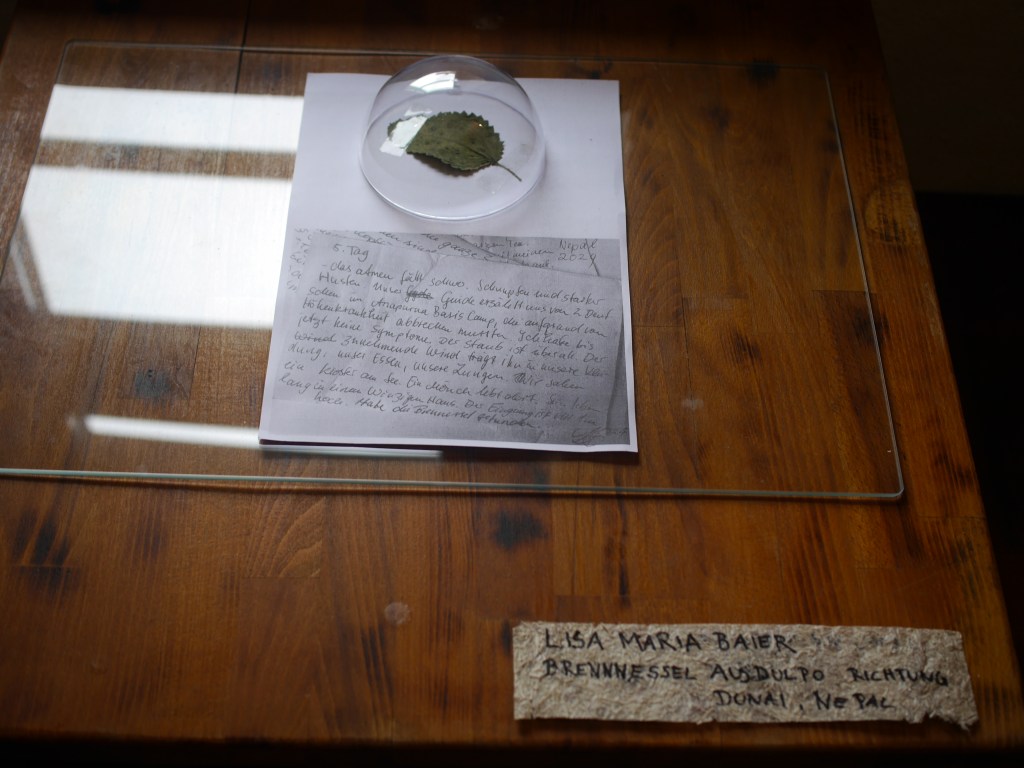 Nepal
2024
5. Tag
- das atmen fällt schwer. Schnupfen und starker
Husten. Unser Guide erzählt uns von 2
schen im Anapurna Basis Camp, die aufgrund von
Höhenkrankheit abbrechen mussten. Ich habe bis
jetzt keine Symptome. Der Staub ist überall. Der
zunehmende Wind trägt ihn in unsere Klei-
dung, unser Essen, unsere Lungen. Wir sahen
ein Kloster am See. Ein Mönch lebt dort
lang in einem winzigen Haus. Der Eingang ist
hoch. Habe die Brennessel gefunden.
LISA MARIA BAIER
BRENNNESSEL AUS DULPO RICHTUNG
DUNAI, NEPAL